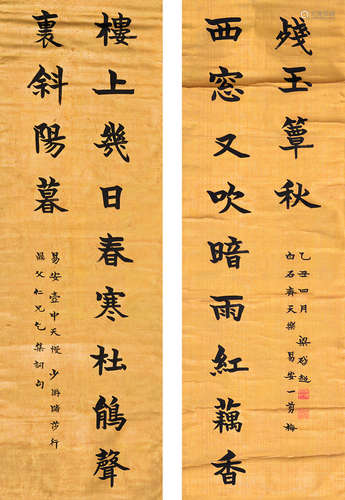 樓上幾日春寒杜鵑聲
裏斜陽暮
易安壺中天慢 少游踏莎行
父仁兄乞集詞句
西窓又吹暗雨紅藕香
殘玉簟秋
白石齊天樂 易安一剪梅
乙丑四月 梁啟超